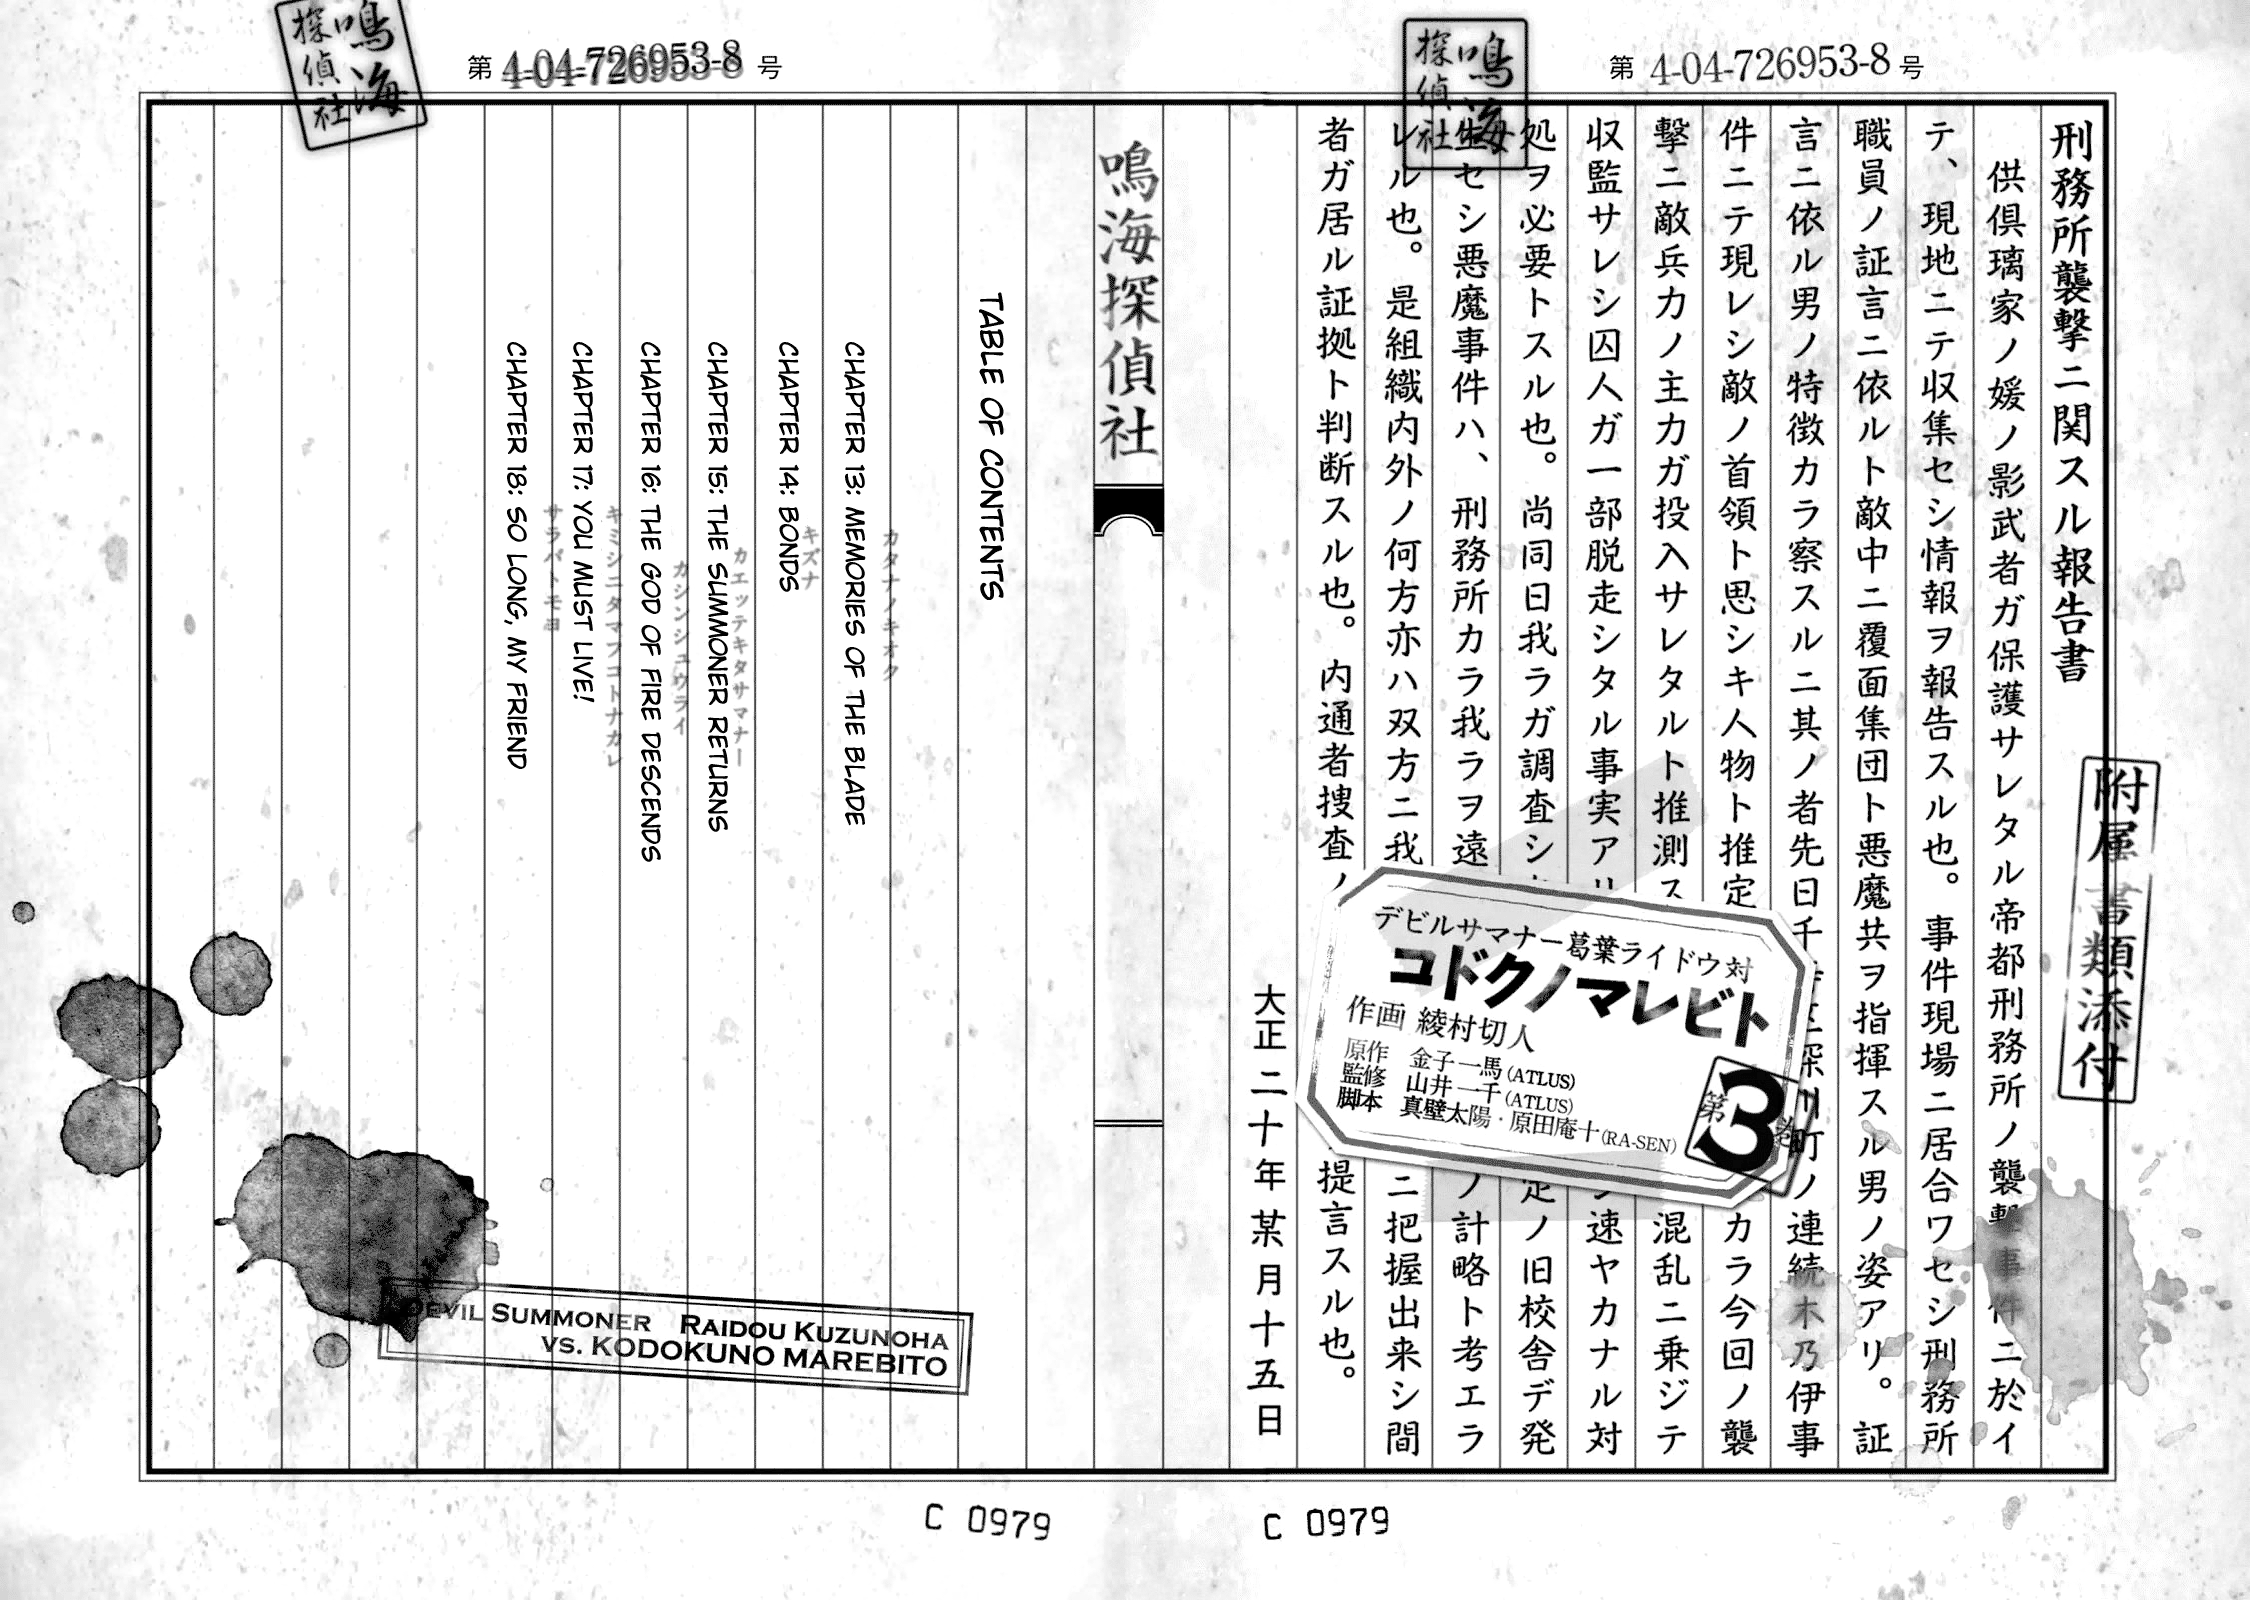 第 4-04-726953-8 号
鳴海
探偵社
刑務所襲撃ニ関スル報告書
附属書類添付
供倶璃家ノ媛ノ影武者ガ保護サレタル帝都刑務所ノ襲撃事件ニ於イ
テ、現地ニテ収集セシ情報ヲ報告スル也。事件現場ニ居合ワセシ刑務所
職員ノ証言ニ依ルト敵中ニ覆面集団ト悪魔共ヲ指揮スル男ノ姿アリ。証
言ニ依ル男ノ特徴カラ察スルニ其ノ者先日千 深川町ノ連続木乃伊事
件ニテ現レシ敵ノ首領ト思シキ人物ト推定 カラ今回ノ襲
撃ニ敵兵力ノ主力ガ投入サレタルト推測ス 混乱ニ乗ジテ
収監サレシ囚人ガ一部脱走シタル事実アリ 速ヤカナル対
処ヲ必要トスル也。尚同日我ラガ調査シ 定ノ旧校舎デ発
生セシ悪魔事件ハ、刑務所カラ我ラヲ遠 ノ計略ト考エラ
レル也。是組織内外ノ何方亦ハ双方ニ我 ニ把握出来シ間
者ガ居ル証拠ト判断スル也。内通者捜査ノ 提言スル也。
大正二十年某月十五日
デビルサマナー葛葉ライドウ対
コドクノマレビト
作画 綾村切人
原作 金子一馬(ATLUS)
監修 山井一千(ATLUS)
脚本 真壁太陽・原田庵十(RA-SEN)
第3巻
C 0979
鳴海探偵社
第 4-04-726953-8 号
鳴海
探偵社
TABLE OF CONTENTS
カタナノキオク
CHAPTER 13: MEMORIES OF THE BLADE
キズナ
CHAPTER 14: BONDS
カエッテキタサマナー
CHAPTER 15: THE SUMMONER RETURNS
カシンシュウライ
CHAPTER 16: THE GOD OF FIRE DESCENDS
キミシニタマフコトナカレ
CHAPTER 17: YOU MUST LIVE!
サラバトモヨ
CHAPTER 18: SO LONG, MY FRIEND
DEVIL SUMMONER RAIDOU KUZUNOHA
VS. KODOKUNO MAREBITO
C 0979